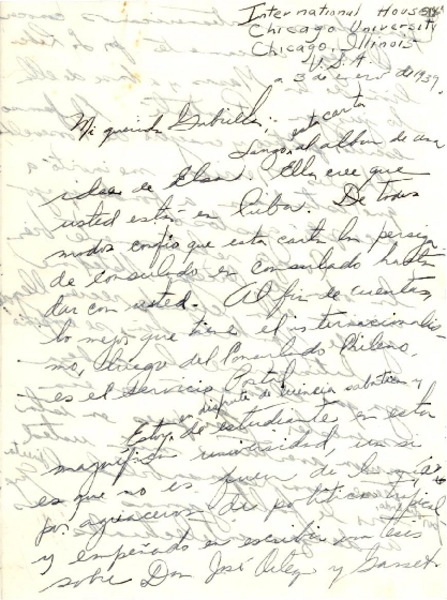 International House
Chicago University
Chicago, Illinois
U.S.A.
a 3 de enero de 1939.
Mi querida Gabriela:
esta carta
Lanzo al albur de una
idea de Elsa. Ella cree que
usted está en Cuba. De todos
modos confío que esta carta la persiga
de consulado en consulado hasta
dar con usted. Al fin de cuentas,
lo mejor que tiene el internacionalis-
mo, luego del Consulado Chileno,
es el Servicio Postal.
en disfrute de licencia sabática y
Estoy de estudiante en esta
magnífica universidad, un si
es que no es
por aguaceros de política tropical
y empeñado en escribir un tesis
sobre Don José Ortega y Gasset